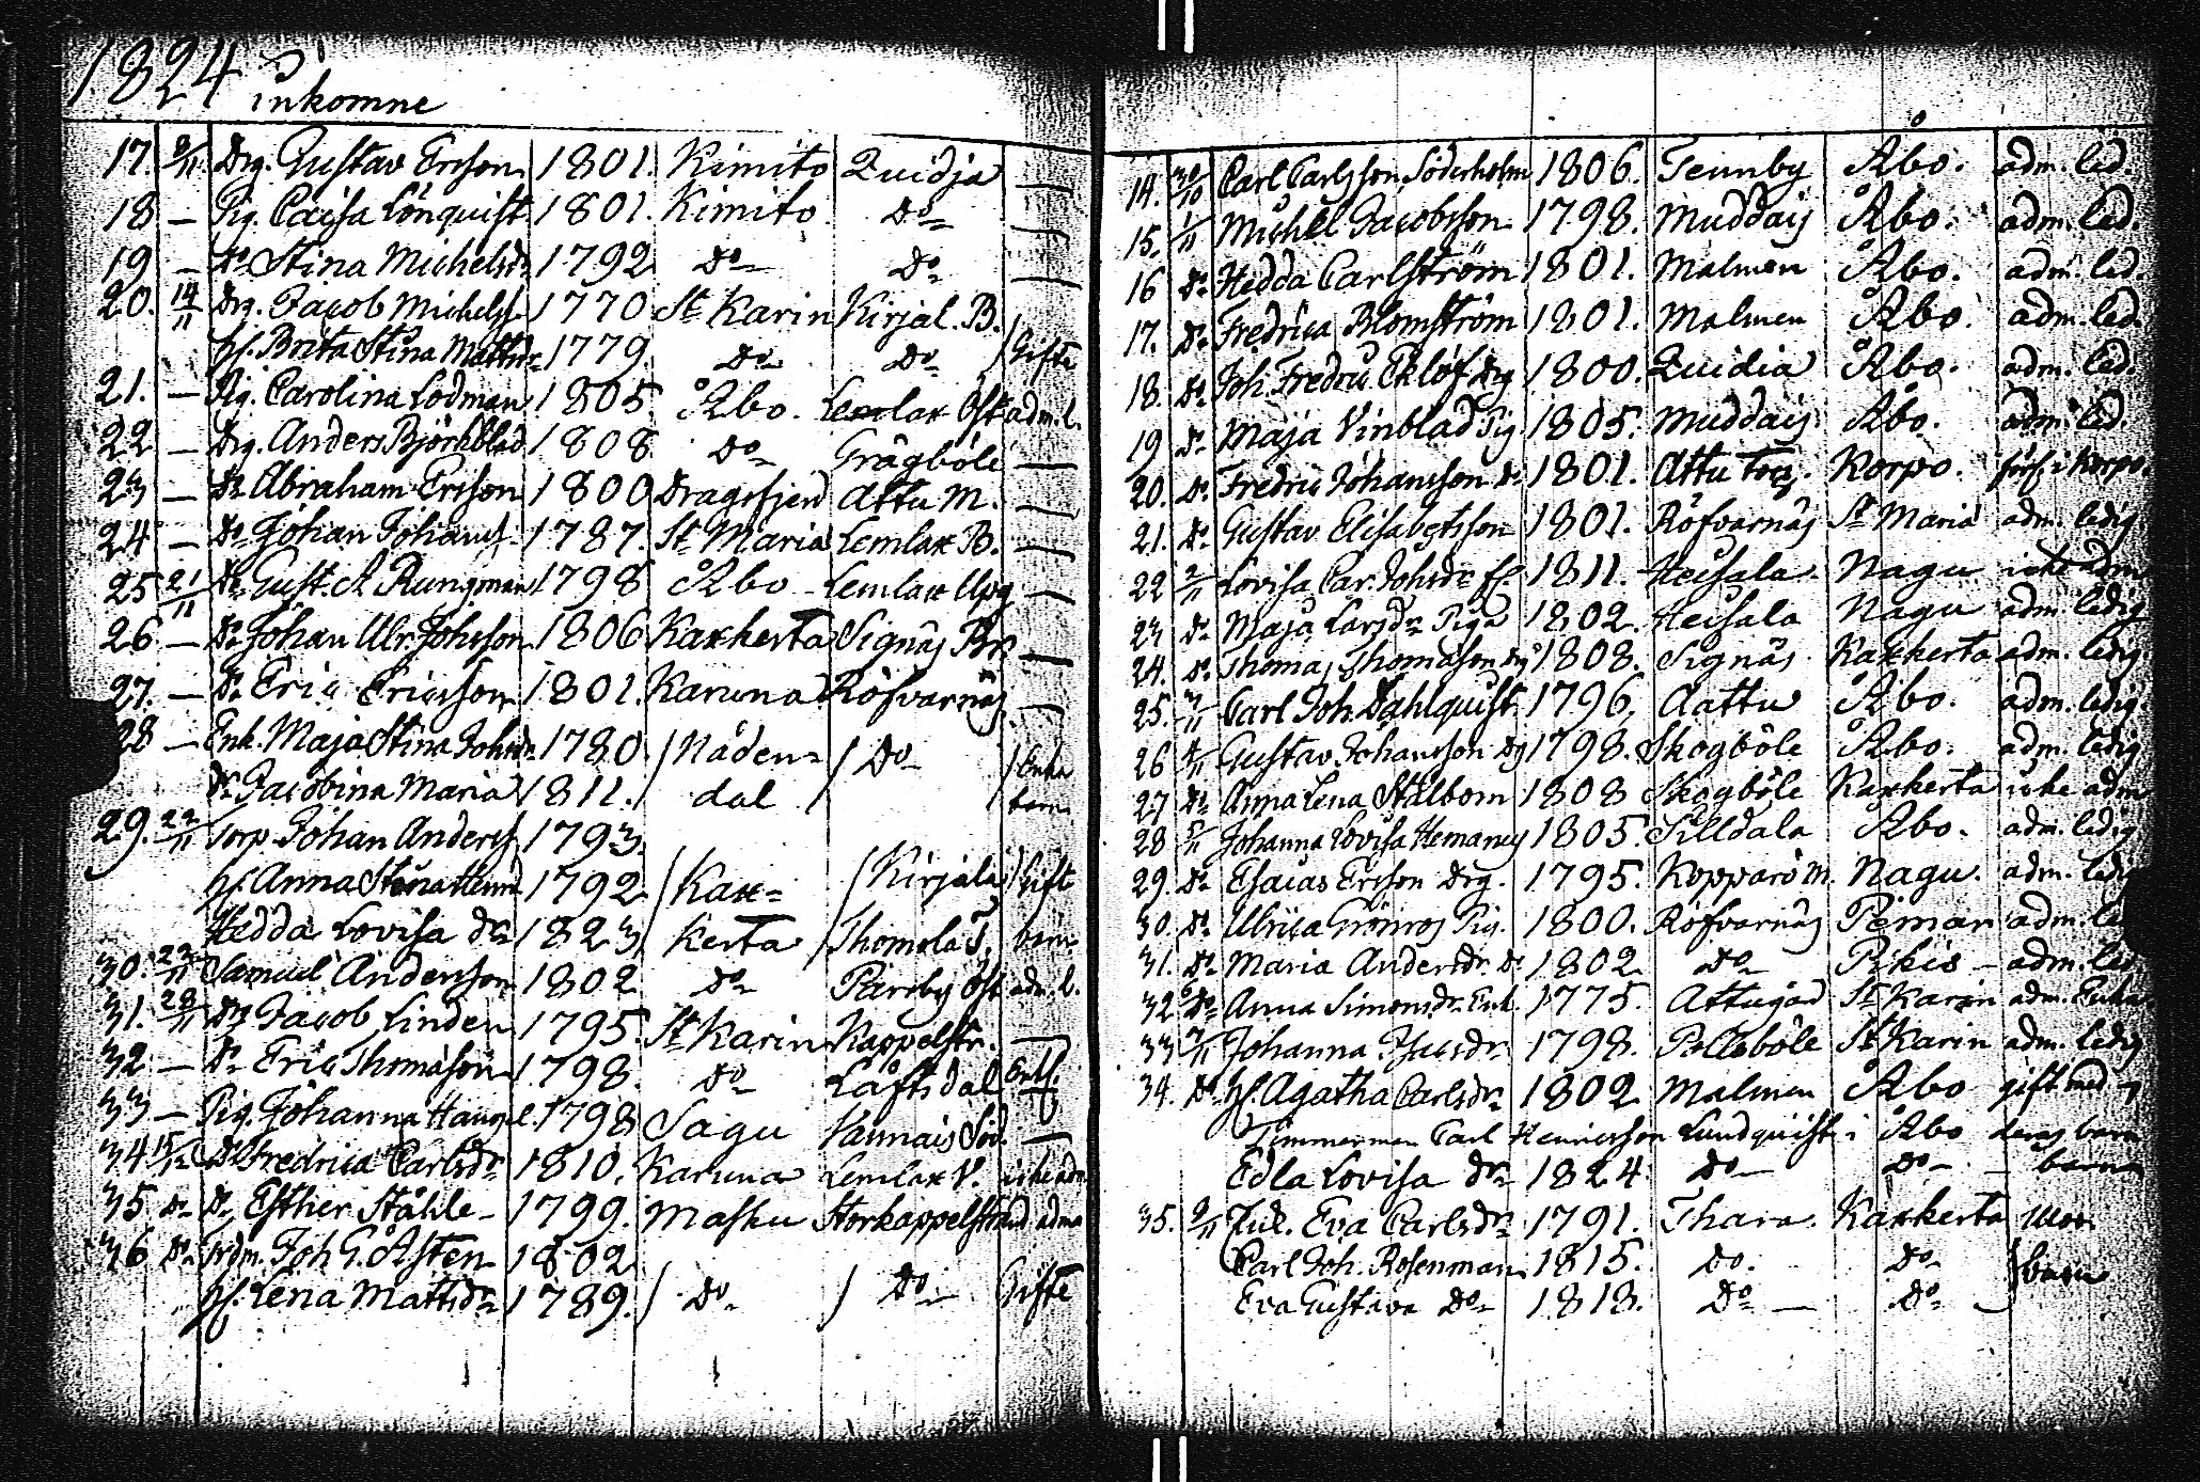 1824 inkomne
17. 9/11 Drg. Gustav Ersson 1801. Kimito Quidja —
18 — Pig. Caisa Lönquist 1801. Kimito Do —
19 — Do Stina Michelsdr 1792 Do Do —
20. 14/11 Drg. Jacob Michelss. 1770 St Karin Kirjal. B.
hf. Brita Stina Mattsdr 1779. Do Do Gifte
21. — Pig. Carolina Lodman 1805. Åbo. Lemlax Öst adm. l.
22 — Drg. Anders Björkblad 1808. Do Grågböle —
23 — Do Abraham Ersson 1800 Dragsfjerd Attu M. —
24 — Do Johan Johanss. 1787. St Maria Lemlax B. —
25 21/11 Do Gust. A Rungman 1798 Åbo Lemlax Upg —
26 — Do Johan Ulr. Johsson 1806 Kaxkerta Signäs Br. —
27. — Do Eric Ericsson 1801. Karuna Röfvarnäs —
28 — Enk. Maja Stina Johsdr 1780. Nåden= Do Enka
Dr Jacobina Maria 1811. dal barn
29. 22/11 Torp. Johan Anderss. 1793.
hf. Anna Stina Henrd 1792. Kax= Kirjala Gift
Hedda Lovisa dr 1823 kerta Thomola T. barn
30. 22/11 Samuel Andersson 1802 Do Pärsby Öst adm. l.
31. 28/11 Drg Jacob Linden 1795. St Karin Kappelstr. —
32 — Do Eric Thomasson 1798. Do Låftsdal Enkl.
33 — Pig. Johanna 1798 Sagu Vannais Söd. —
34 15/12 Do Fredrica Carlsdr 1810. Karuna Lemlax V. icke adm
35 Do Do Esther Ståhle 1799. Masku Storkappelstrand adm
36 Do Joh G. Åsten 1802
hf. Lena Mattsdr 1789. Do Do Gifte
14. 30/10 Carl Carlsson Söderholm 1806. Tennby Åbo. adm. led.
15. 1/11 Michel Jacobsson 1798. Muddais Åbo. adm. led.
16 Do Hedda Carlström 1801. Malmen Åbo. adm. led.
17. Do Fredrica Blomström 1801. Malmen Åbo. adm. led.
18. Do Joh. Fredric Eklöf Drg 1800. Quidia Åbo. adm. led.
19 Do Maja Vinblad Pig 1805. Muddais Åbo. adm. led.
20. Do Fredric Johansson Do 1801. Attu Korpo. förs. i Korpo.
21. Do Gustav Elisabetsson 1801. Röfvarnäs St Maria adm. ledig
22 2/11 Lovisa Car. Johsdr fl. 1811. Heisala. Nagu icke adm
23 Do Maja Larsdr Piga 1802. Heisala Nagu adm. ledig
24. Do Thomas Thomasson Drg 1808. Signäs Kaxkerta adm. ledig
25. 3/11 Carl Joh. Dahlquist 1796. Aattu Åbo. adm. ledig.
26 4/11 Gustav Johansson Drg 1798. Skogböle Åbo. adm. ledig
27 Do Anna Lena Stålbom 1808 Skogböle Kaxkerta icke adm
28 5/11 Johanna Lovisa 1805. Silldala Åbo. adm. ledig
29. Do Esaias Ersson Drg. 1795. Kopparö M. Nagu. adm. ledig
30. Do Ulrica Grönros Pig. 1800. Röfvarnäs Pemar adm. led
31. Do Maria Andersdr Do 1802. Do Pikis adm. led
32 6 Do Anna Simonsdr Enk. 1775. Attugård St Karin adm. Enka
33 7/11 Johanna Isacsdr 1798. Pelleböle St Karin adm. ledig
34. Do hf. Agatha Carlsdr 1802 Malmen Åbo gift med
Timmerman Carl Henricsson Lundquist i Åbo deras barn
Edla Lovisa dr 1824. Do Do — barn
35. 9/11 Enk. Eva Carlsdr 1791. Thara. Kaxkerta Mor.
Carl Joh. Rosenman 1815. Do. Do
Eva Gustava Do 1818. Do — Do barn